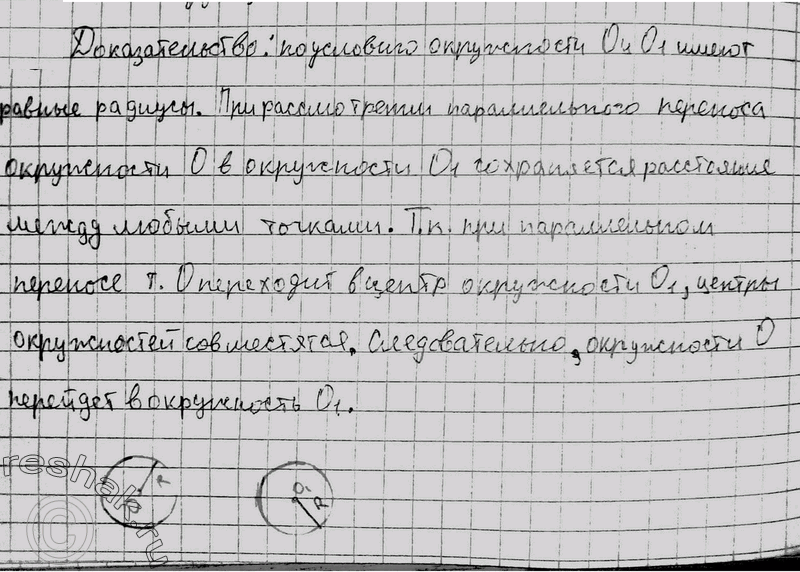 Доказательство: по условию окружности O и O1 имеют
равные радиусы. При рассмотрении параллельного переноса
окружности O в окружности O1 сохраняется расстояние
между любыми точками. Т.к. при параллельном
переносе т. O переходит в центр окружности O1, центры
окружностей совместятся. Следовательно, окружности O
перейдет в окружность O1.
O R
O1 R
reshak.ru
©